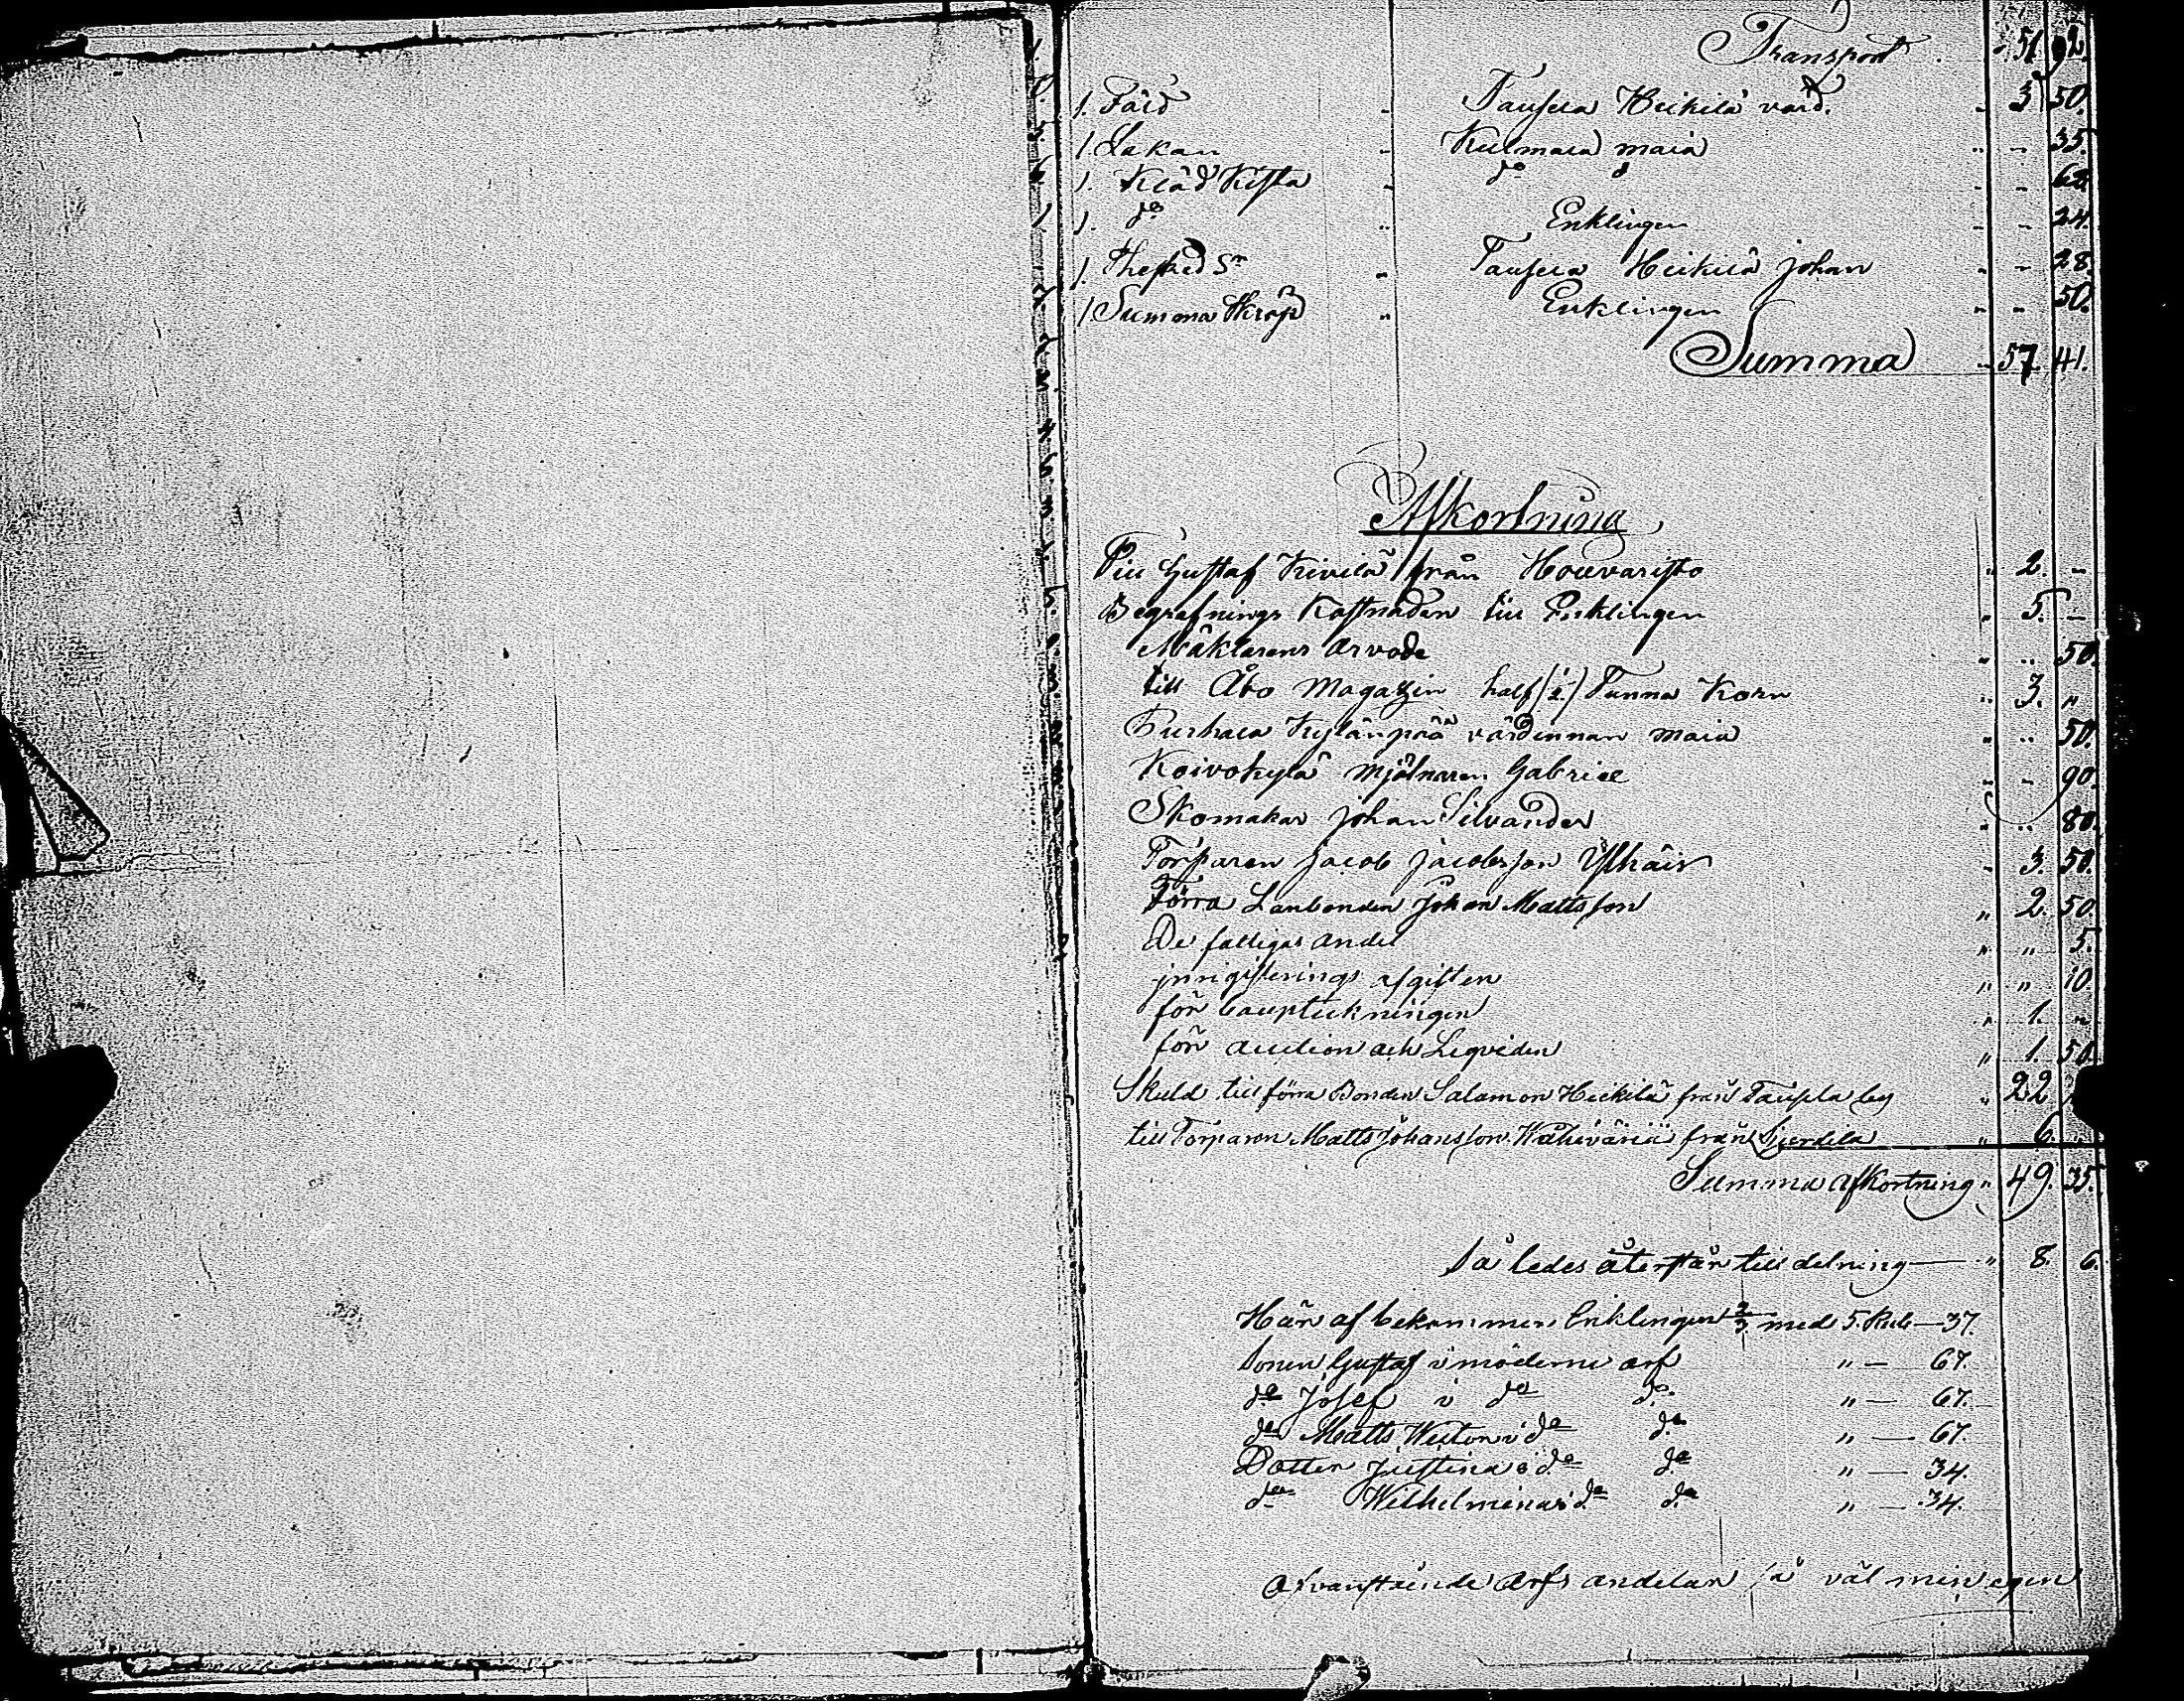 Transport . " 51 92.
1. Fäld " Tausela Heikilä värd. " 3 50.
1 Lakan " Kulmala maia " " 35.
1. Kläd Kista " do do " " 62.
1. do " Enklingen " " 24.
1. " Tausela Heikilä Johan " " 28.
1 Summa Skräp " Enklingen " " 50.
Summa " 57. 41.
Afkortning
Till Gustaf Kivilä från Houvaristo " 2. "
Begrafnings Kostnaden till Enklingen " 5. "
Mäklarens arvode " " 50.
till Åbo Magatzin half (1/2) Tunna Korn " 3. "
Kylänpää värdinnan maia " " 50.
Koivokylä mjölnaren Gabriel " " 90.
Skomakar Johan Silvander " " 80.
Torparen Jacob Jacobsson " 3. 50.
Förra Lanbonden Johan Mattsson " 2. 50.
De fattigas andel " " 5.
inrigisterings afgiften " " 10.
för bouptekningen " 1. "
för auction och Liqviden " 1. 50.
Skuld till förra Bonden Salamon Heikilä från Taupla by " 22
till Torparen Matts Johansson från " 6.
Summa afkortning " 49. 35.
Således återstår till delning — " 8. 6.
Här af bekommer Enklingen 2/3 med 5. Rub — 37.
Sonen Gustaf i möderne arf " — 67.
do Josef i do do " — 67.
do Matts Wiktor i do do " — 67.
Dotter Justina i do do " — 34.
do Wilhelmina i do do " — 34.
Ofvanstående arfs andelar så väl min egen